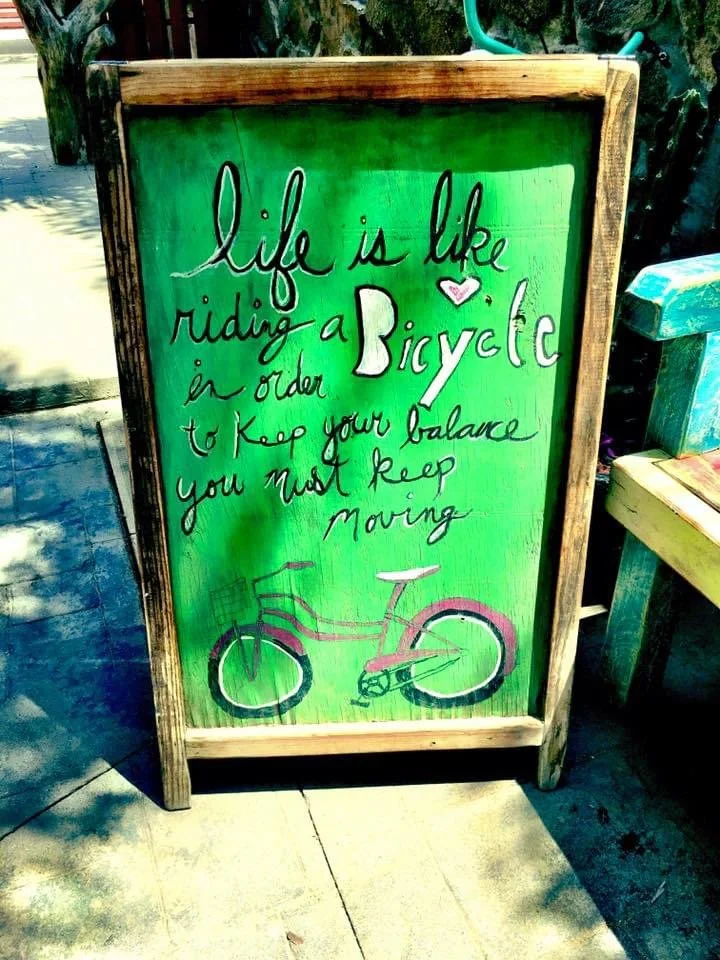 life is like
riding a Bicycle
in order
to Keep your balance
you must keep
moving